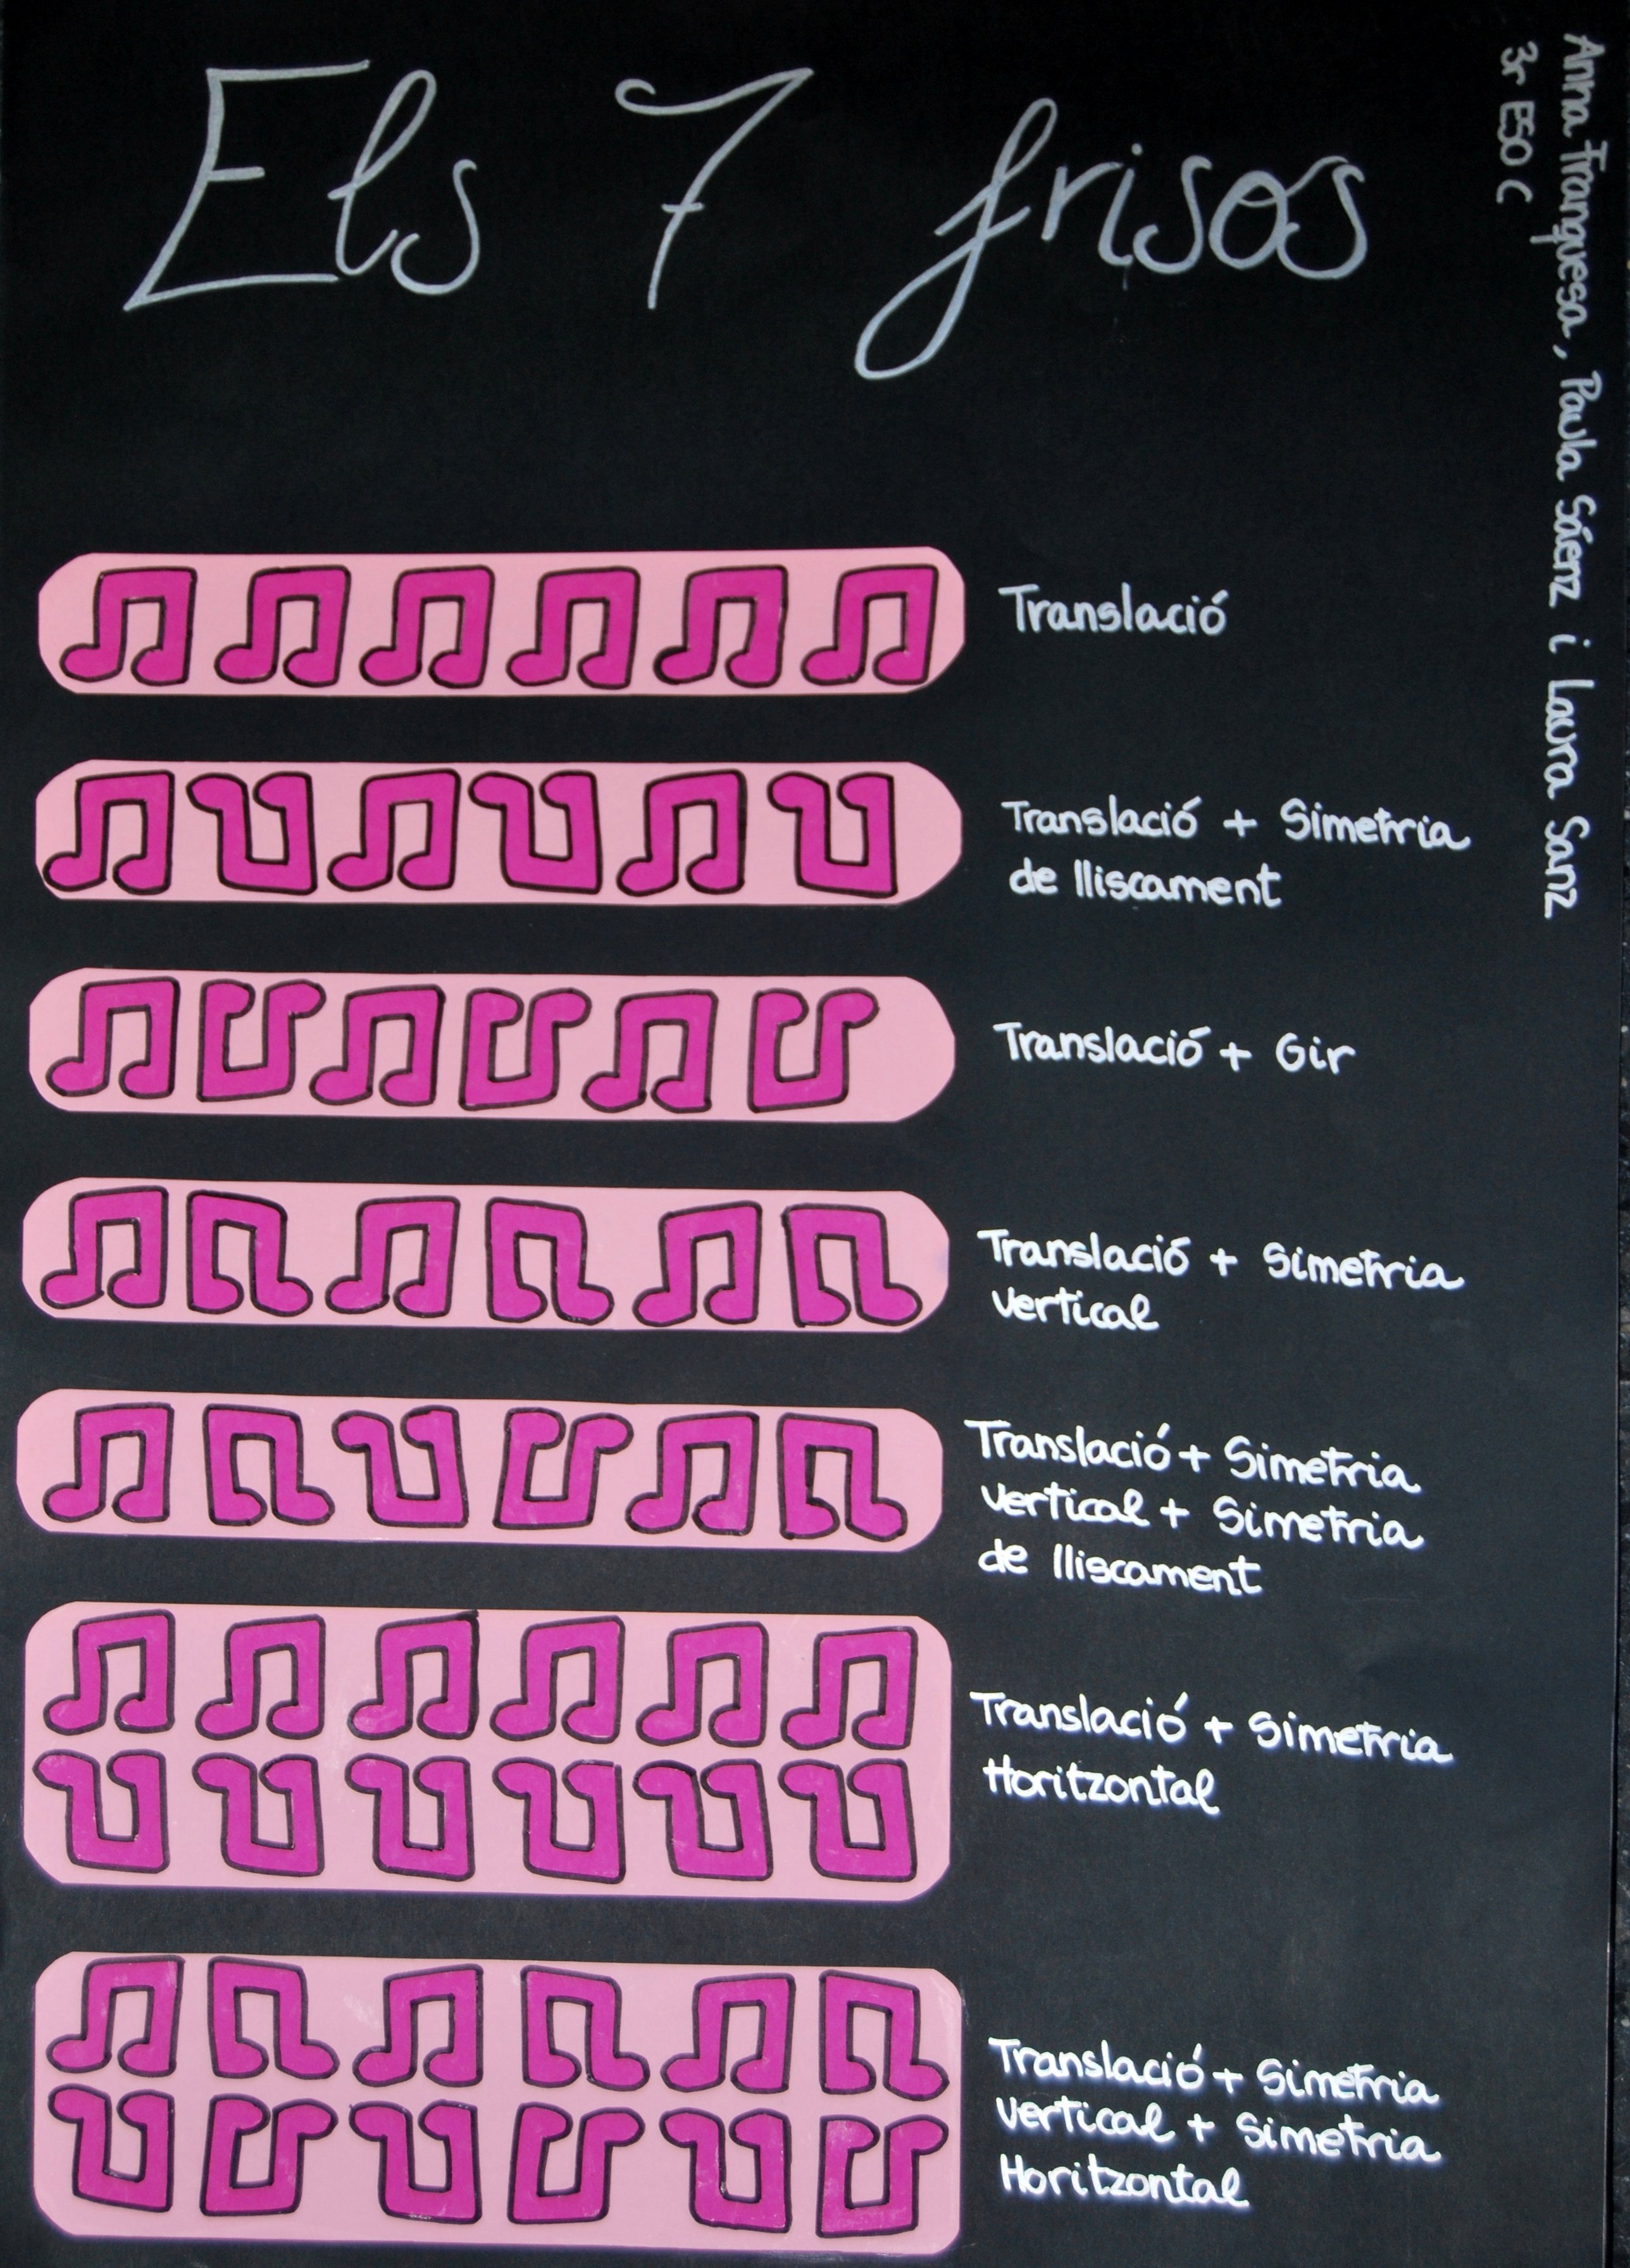 Els 7 frisos
Anna Franquesa, Paula Sáenz i Laura Sanz
3r ESO C
Translació
Translació + Simetria
de lliscament
Translació + Gir
Translació + Simetria
vertical
Translació + Simetria
vertical + Simetria
de lliscament
Translació + Simetria
Horitzontal
Translació + Simetria
vertical + Simetria
Horitzontal